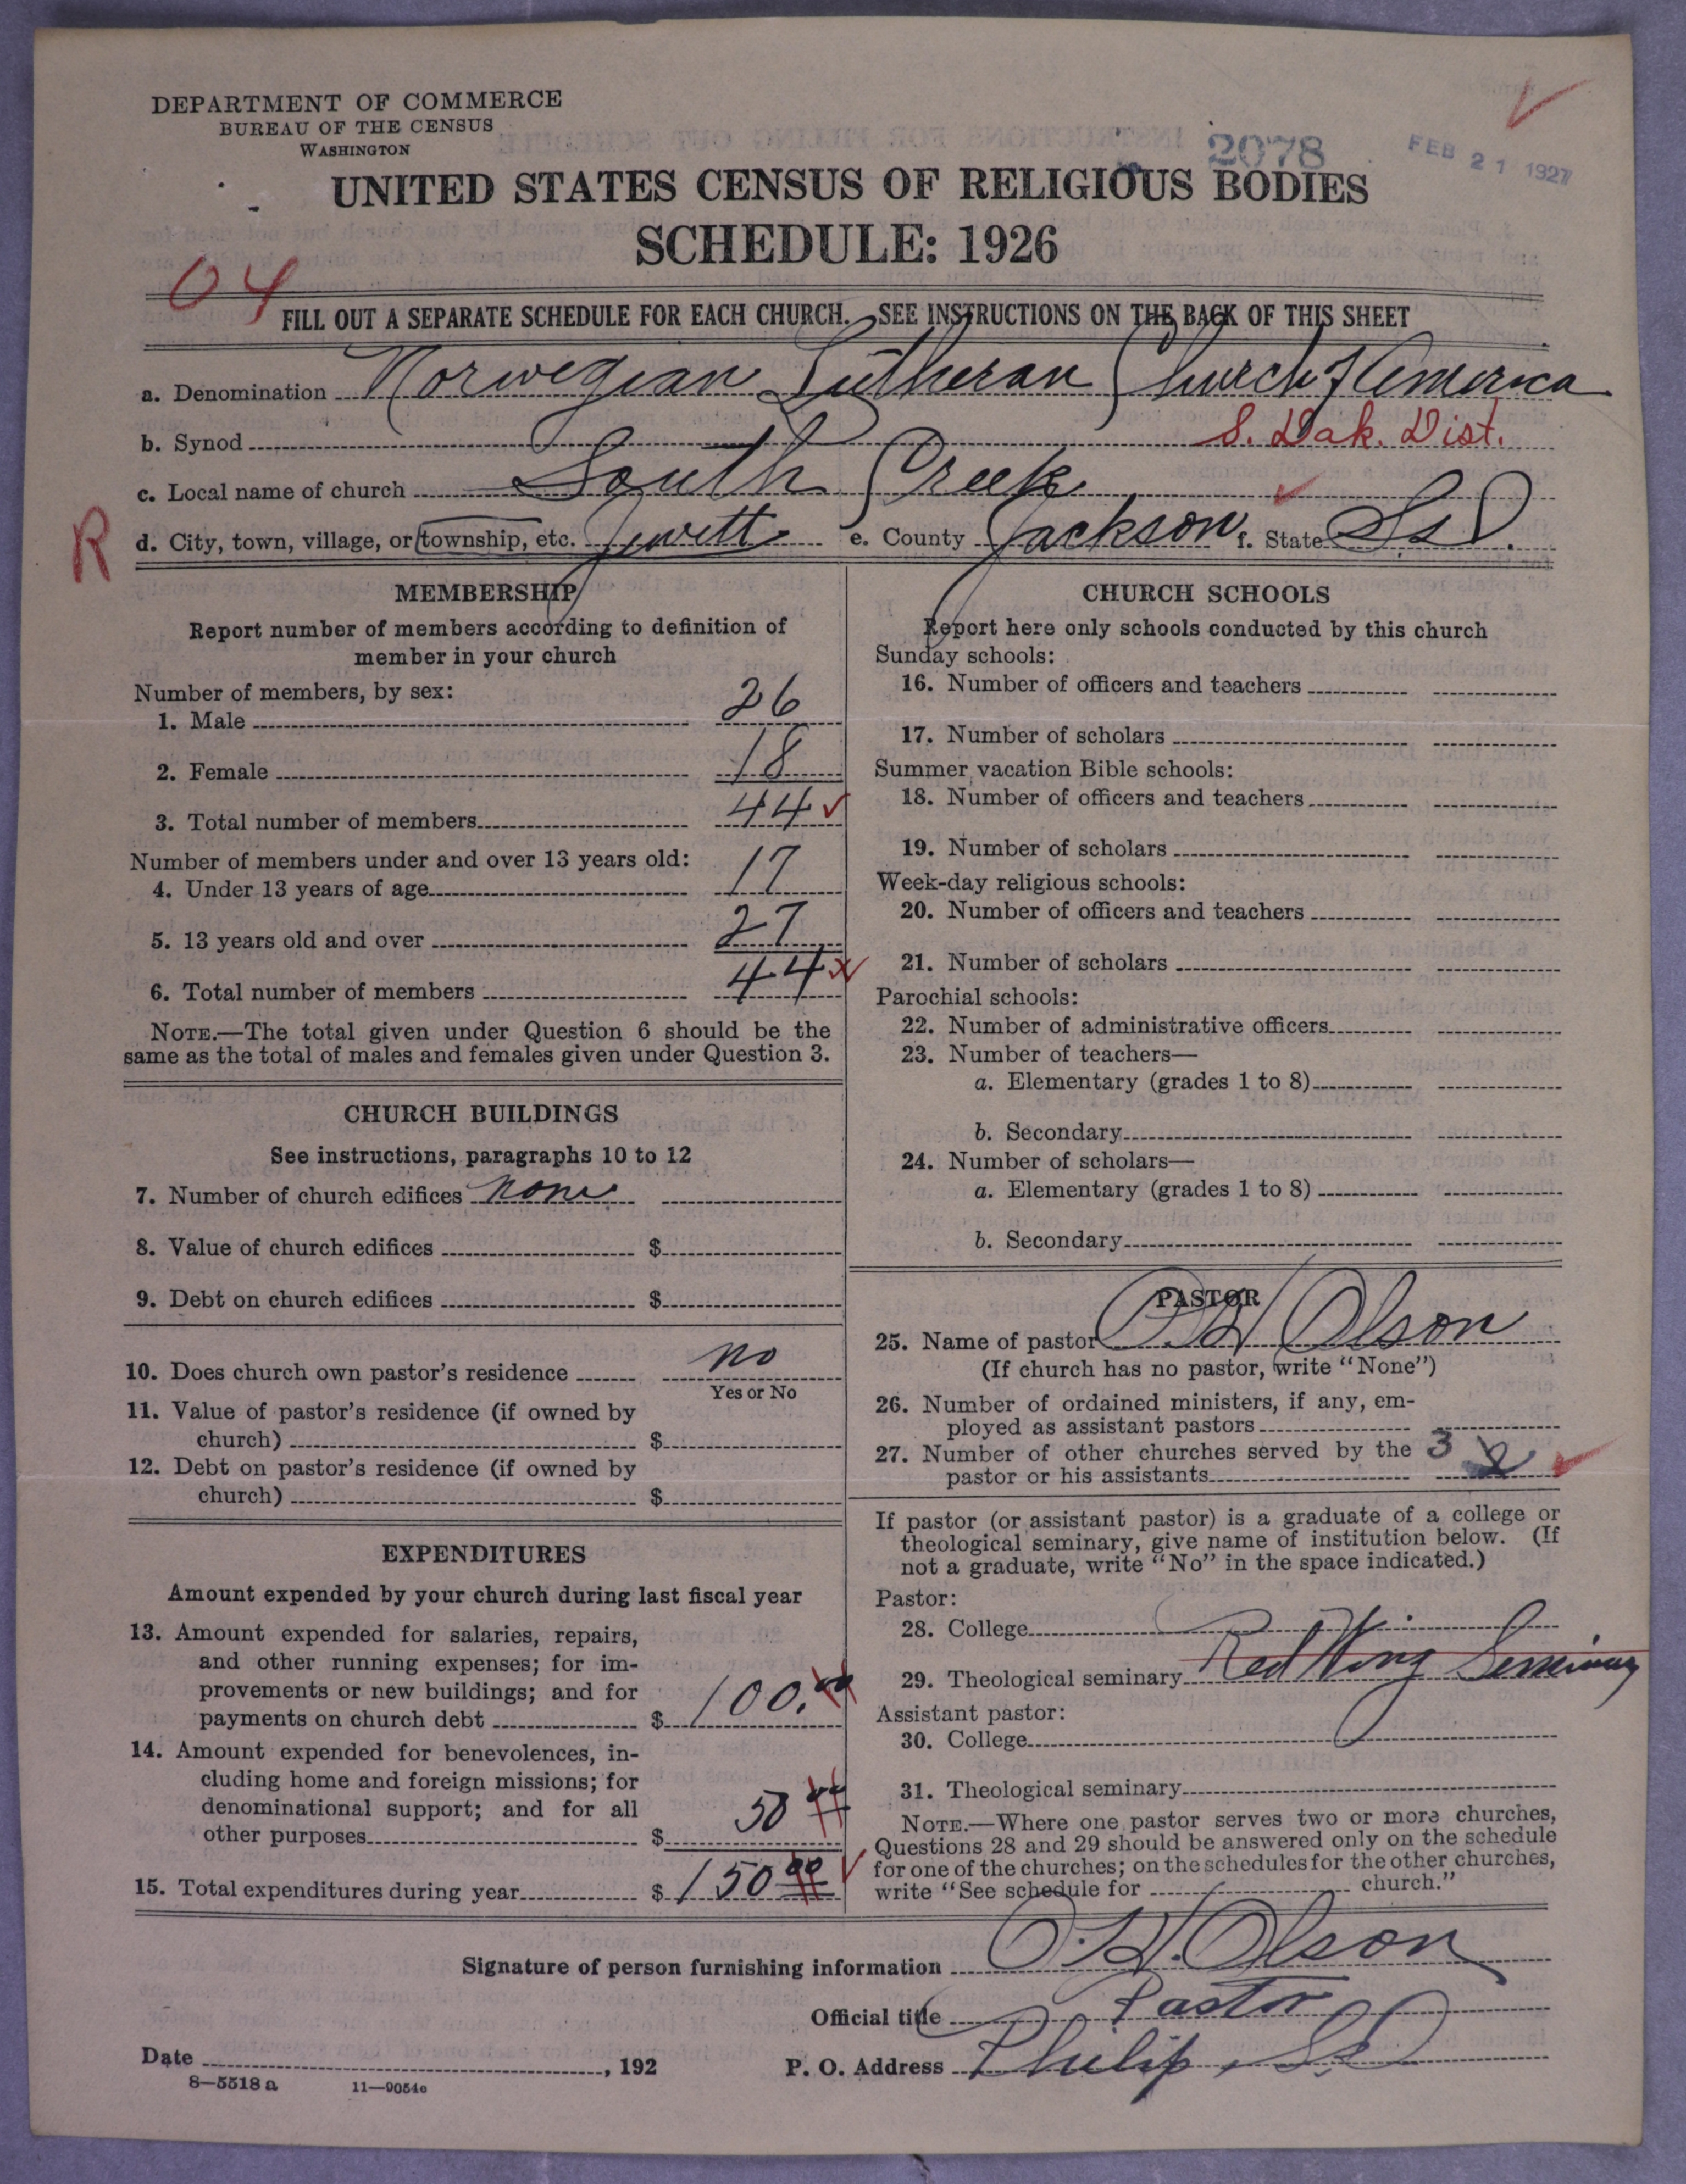 DEPARTMENT OF COMMERCE
BUREAU OF THE CENSUS
WASHINGTON
2078
FEB 21 1927
UNITED STATES CENSUS OF RELIGIOUS BODIES
SCHEDULE: 1926
04
FILL OUT A SEPARATE SCHEDULE FOR EACH CHURCH. SEE INSTRUCTIONS ON THE BACK OF THIS SHEET
a. Denomination Norwegian Lutheran Church of America
b. Synod S. Dak. Dist.
c. Local name of church South Creek
R
d. City, town, village, or township, etc. Jewett e. County Jackson f. State S.D.
MEMBERSHIP
Report number of members according to definition of
member in your church
Number of members, by sex:
1. Male 26
2. Female 18
3. Total number of members 44
Number of members under and over 13 years old:
4. Under 13 years of age 17
5. 13 years old and over 27
6. Total number of members 44
NOTE.—The total given under Question 6 should be the
same as the total of males and females given under Question 3.
CHURCH BUILDINGS
See instructions, paragraphs 10 to 12
7. Number of church edifices none
8. Value of church edifices $
9. Debt on church edifices $
10. Does church own pastor's residence no
Yes or No
11. Value of pastor's residence (if owned by
church) $
12. Debt on pastor's residence (if owned by
church) $
EXPENDITURES
Amount expended by your church during last fiscal year
13. Amount expended for salaries, repairs,
and other running expenses; for im-
provements or new buildings; and for
payments on church debt $ 100.00
14. Amount expended for benevolences, in-
cluding home and foreign missions; for
denominational support; and for all
other purposes $ 50
15. Total expenditures during year $ 150 00
CHURCH SCHOOLS
Report here only schools conducted by this church
Sunday schools:
16. Number of officers and teachers
17. Number of scholars
Summer vacation Bible schools:
18. Number of officers and teachers
19. Number of scholars
Week-day religious schools:
20. Number of officers and teachers
21. Number of scholars
Parochial schools:
22. Number of administrative officers
23. Number of teachers—
a. Elementary (grades 1 to 8)
b. Secondary
24. Number of scholars—
a. Elementary (grades 1 to 8)
b. Secondary
PASTOR
25. Name of pastor O. H. Olson
(If church has no pastor, write "None")
26. Number of ordained ministers, if any, em-
ployed as assistant pastors
27. Number of other churches served by the 3
pastor or his assistants
If pastor (or assistant pastor) is a graduate of a college or
theological seminary, give name of institution below. (If
not a graduate, write "No" in the space indicated.)
Pastor:
28. College
29. Theological seminary Red Wing Seminary
Assistant pastor:
30. College
31. Theological seminary
NOTE.—Where one pastor serves two or more churches,
Questions 28 and 29 should be answered only on the schedule
for one of the churches; on the schedules for the other churches,
write "See schedule for church."
Signature of person furnishing information O. H. Olson
Official title Pastor
Date , 192 P. O. Address Philip, S.D.
8—5518 a 11—9054c